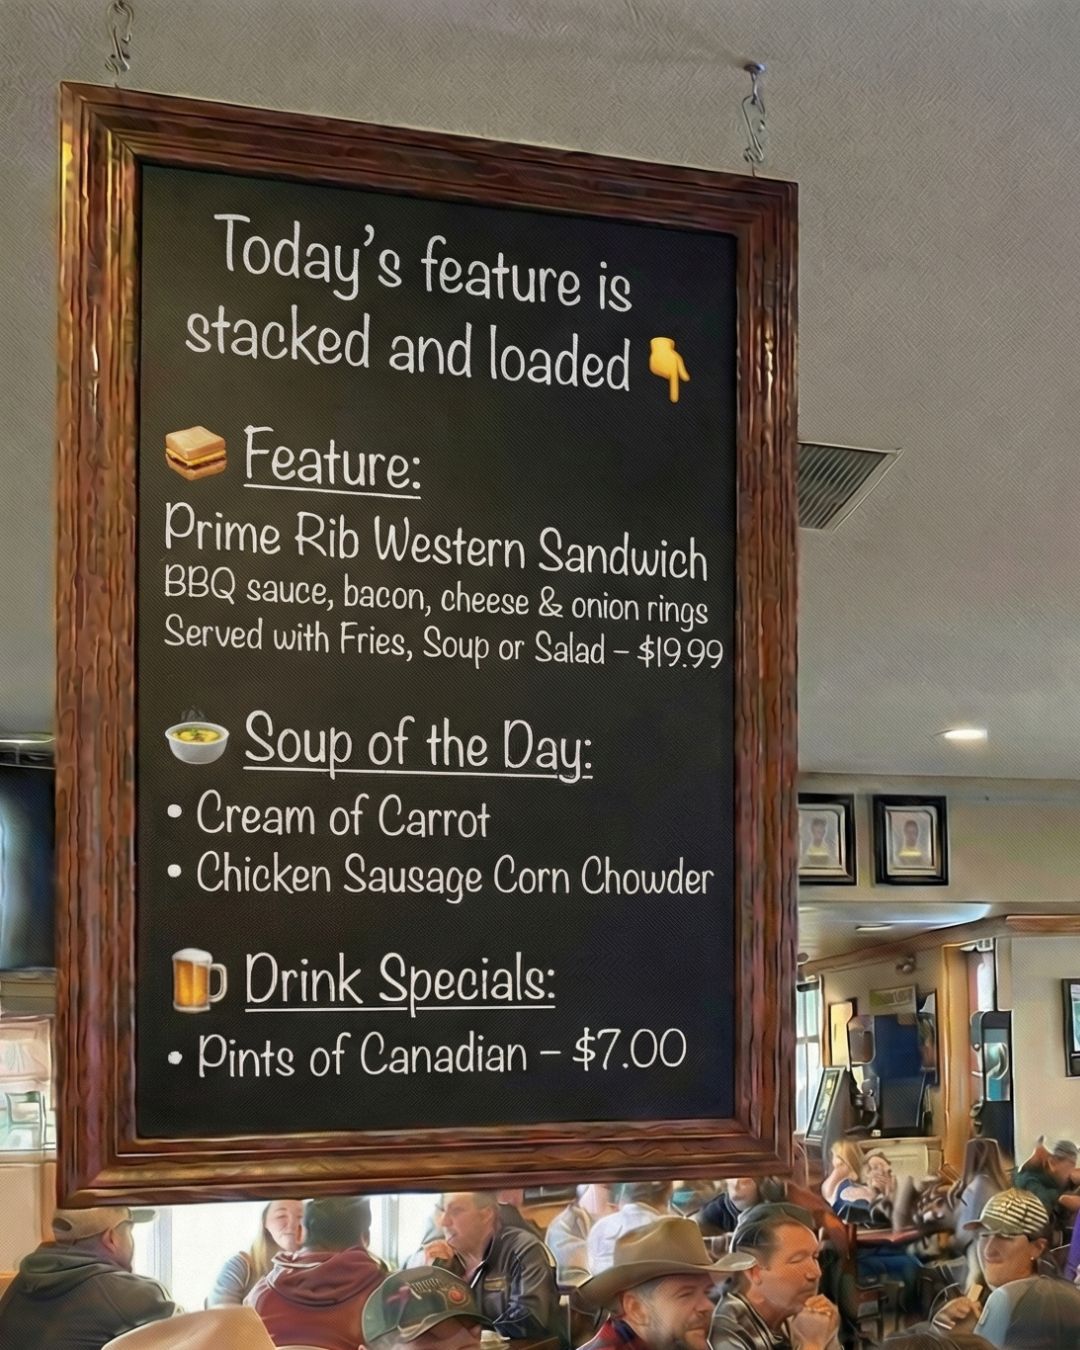 Today’s feature is
stacked and loaded 👇
🥪 Feature:
Prime Rib Western Sandwich
BBQ sauce, bacon, cheese & onion rings
Served with Fries, Soup or Salad – $19.99
🍲 Soup of the Day:
• Cream of Carrot
• Chicken Sausage Corn Chowder
🍺 Drink Specials:
• Pints of Canadian – $7.00